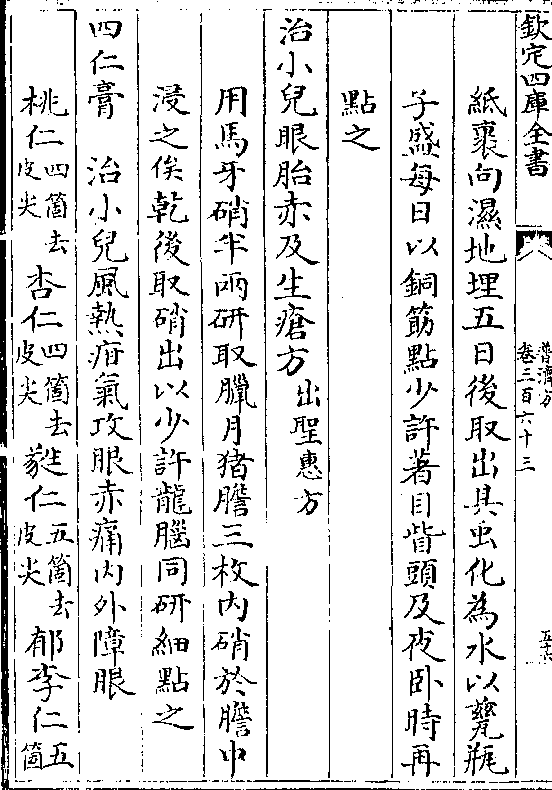 欽定四庫全書
普濟方
卷三百六十三
五十六
紙裹向濕地埋五日後取出其虫化為水以甆瓶
子盛每日以銅筯點少許著目眥頭及夜卧時再
點之
治小兒眼胎赤及生瘡方 出聖惠方
用馬牙硝半兩研取臘月猪膽三枚内硝於膽中
浸之俟乾後取硝出以少許龍腦同研細點之
四仁膏 治小兒風熱疳氣攻眼赤痛内外障眼
桃仁四箇去皮尖 杏仁四箇去皮尖 蕤仁五箇去皮尖 郁李仁五箇